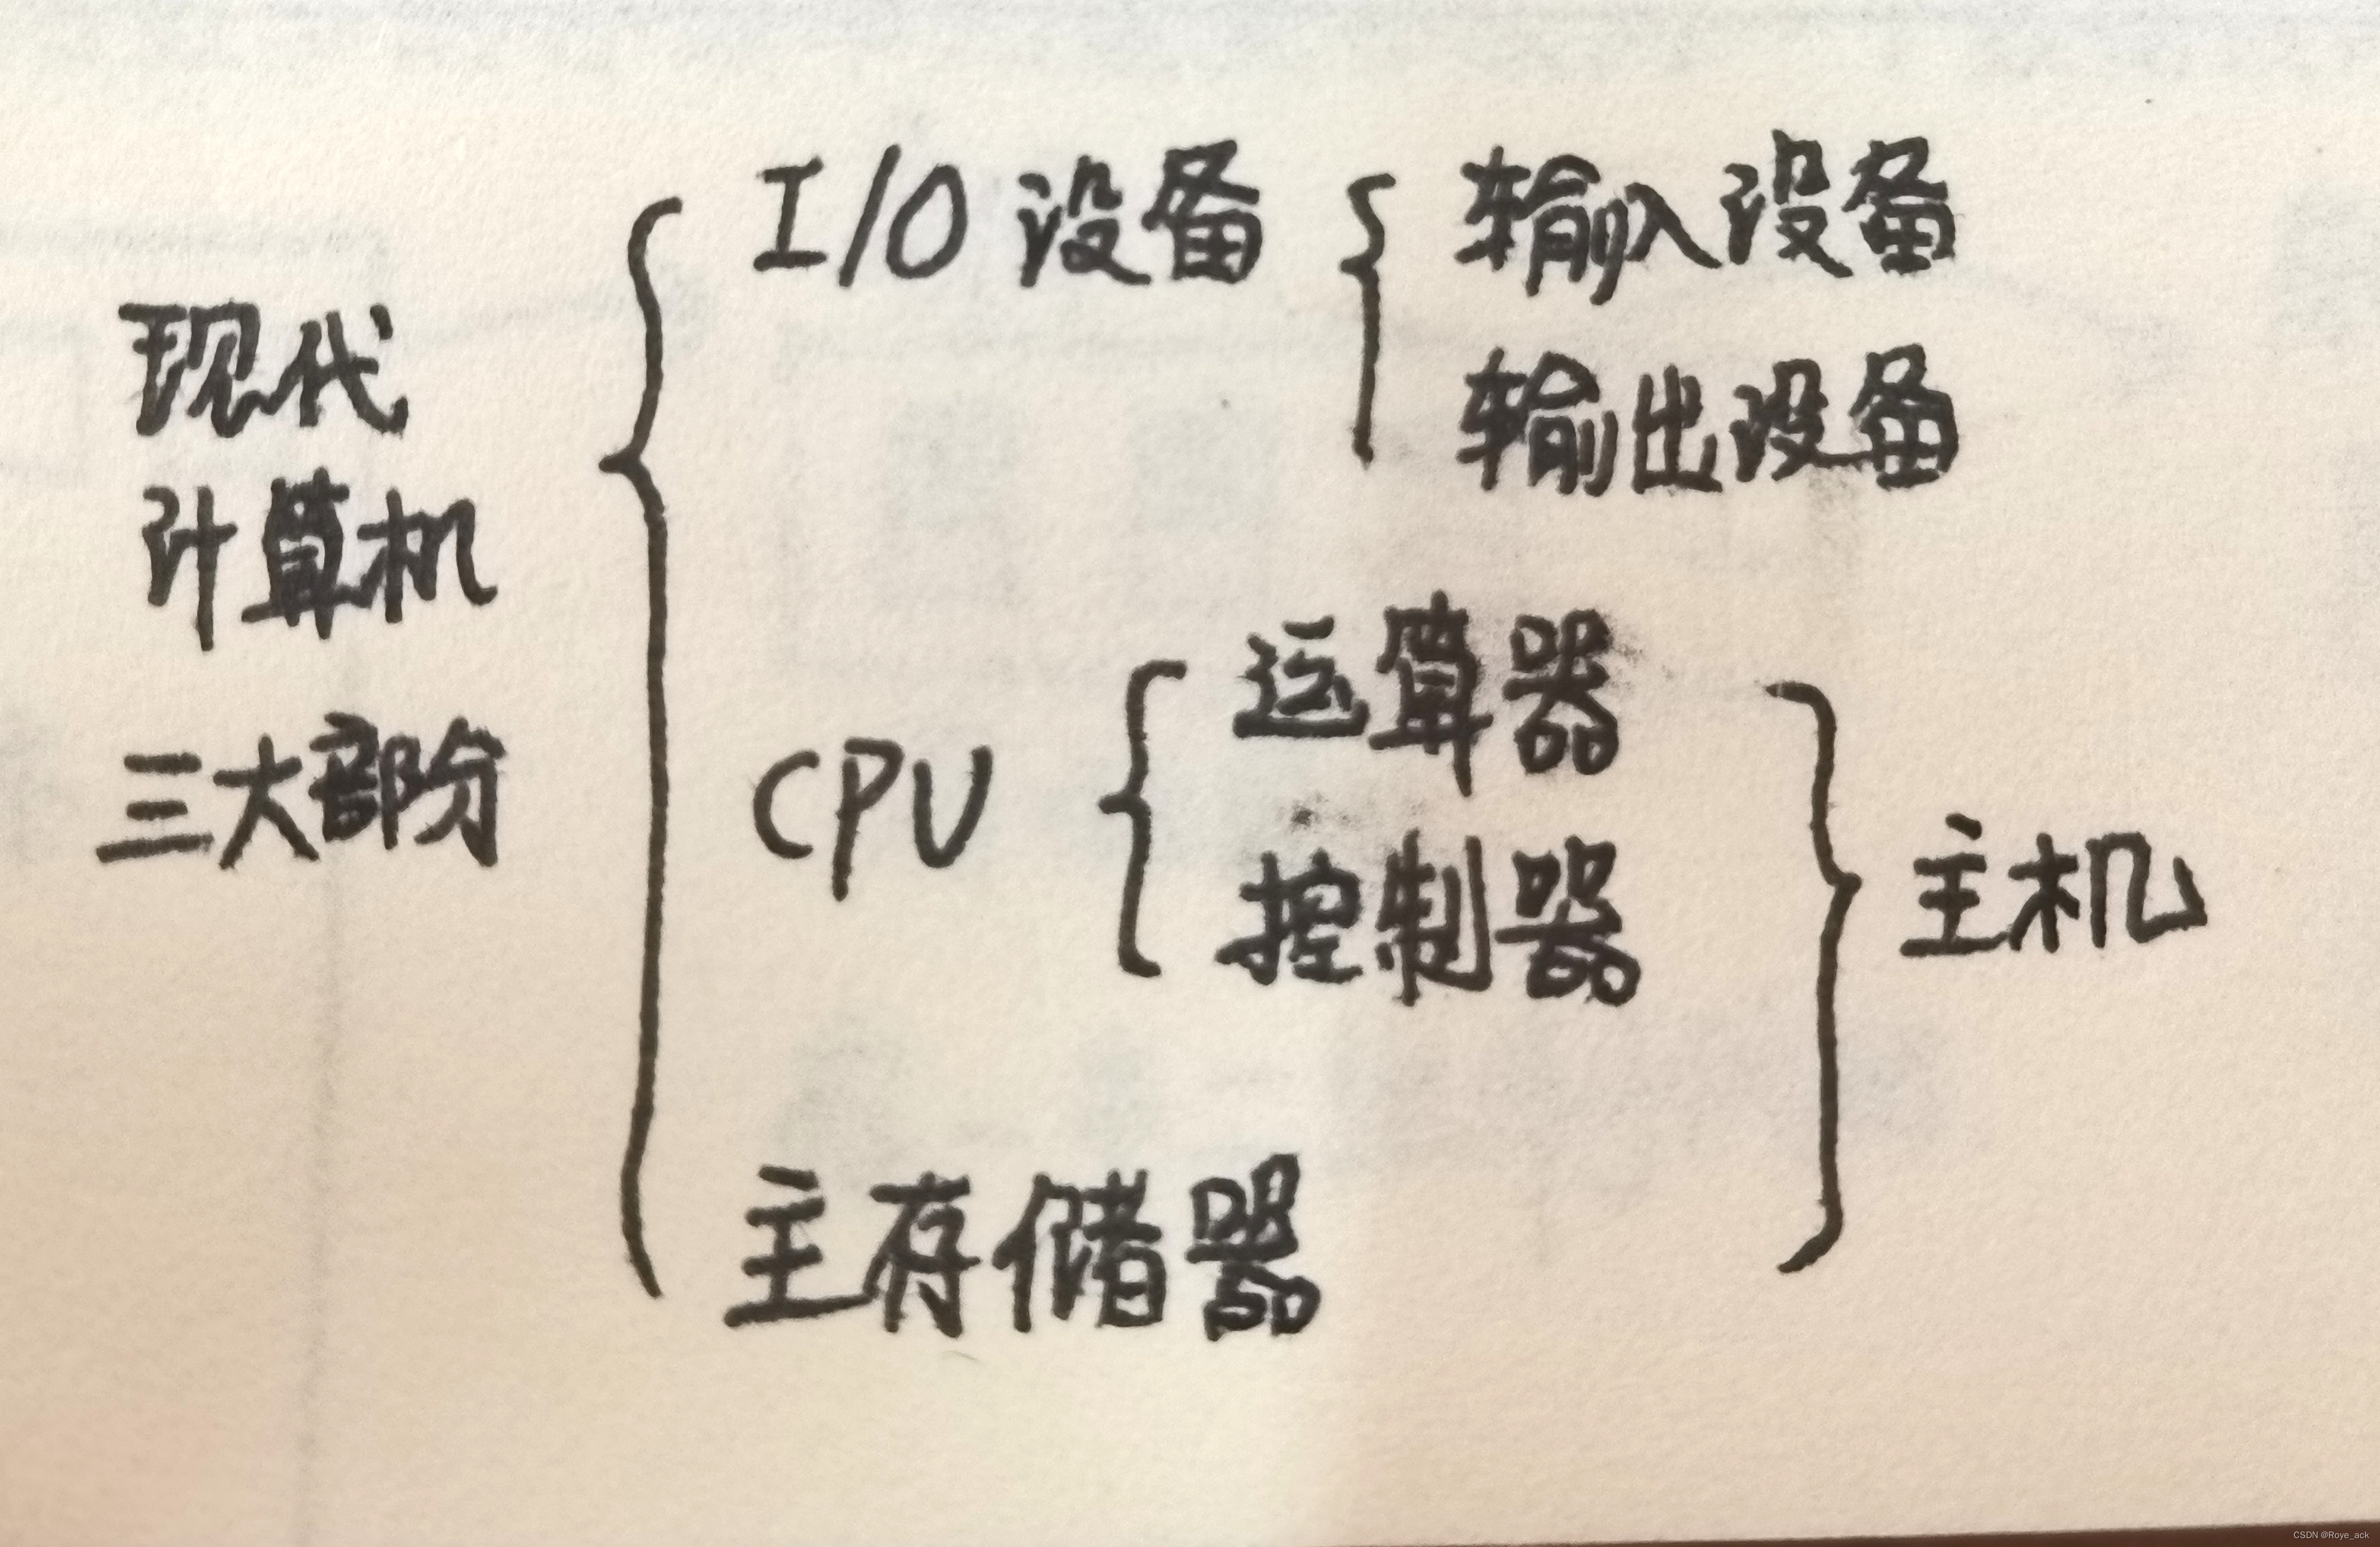 现代
计算机
三大部分
I/O 设备
输入设备
输出设备
CPU
运算器
控制器
主机
主存储器
CSDN @Roye_ack